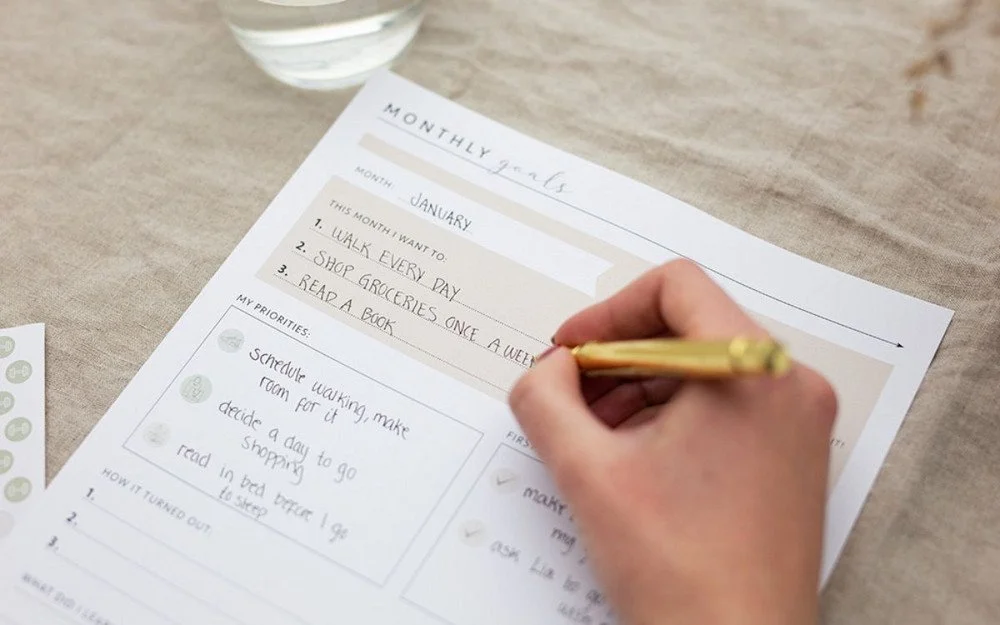 MONTHLY goals
MONTH: JANUARY
THIS MONTH I WANT TO:
1. WALK EVERY DAY
2. SHOP GROCERIES ONCE A WEEK
3. READ A BOOK
MY PRIORITIES:
Schedule walking, make
room for it
decide a day to go
shopping
read in bed before I go
to sleep
HOW IT TURNED OUT:
1.
2.
3.
WHAT DID I
make
my
ask Lia to
with